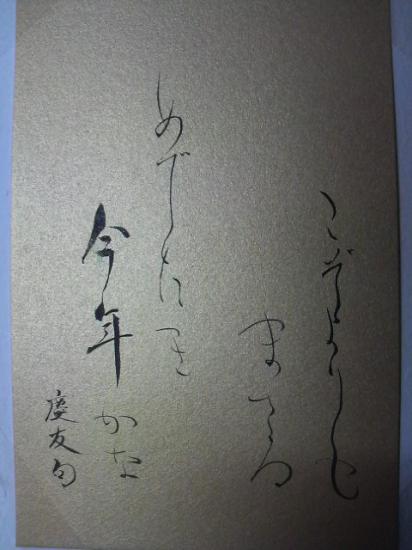 こぞよりも
まさる
めでたき
今年かな
慶友句